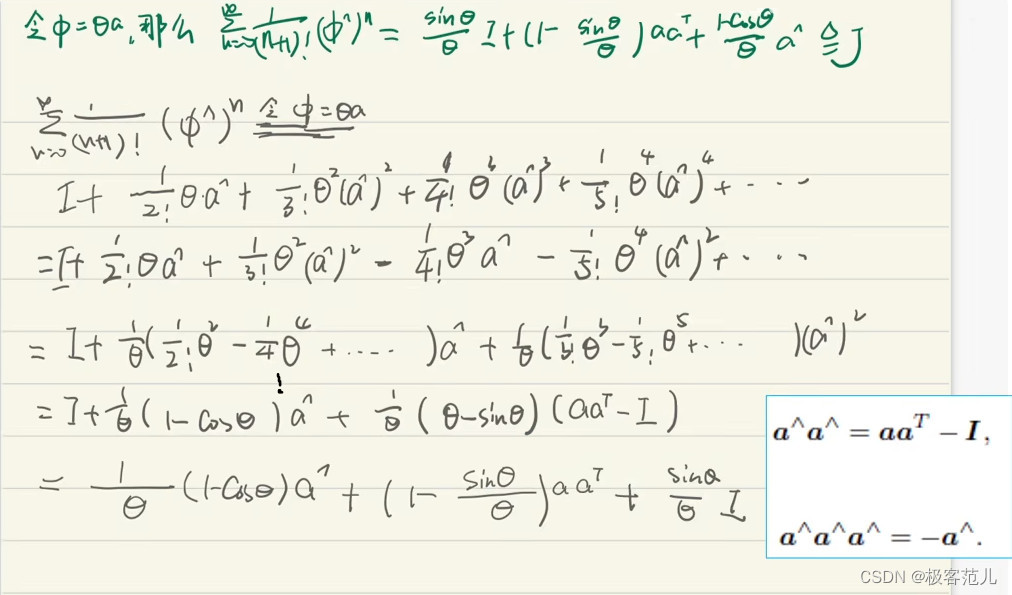 令φ=θa,那么 ∑_{n=0}^{∞} 1/(n+1)! (φ^)^n = sinθ/θ I + (1 - sinθ/θ) aa^T + 1-cosθ/θ a^ ≜ J
∑_{n=0}^{∞} 1/(n+1)! (φ^)^n 令φ=θa
I + 1/2! θ·a^ + 1/3! θ^2 (a^)^2 + 1/4! θ^3 (a^)^3 + 1/5! θ^4 (a^)^4 + ...
= I + 1/2! θa^ + 1/3! θ^2 (a^)^2 - 1/4! θ^3 a^ - 1/5! θ^4 (a^)^2 + ...
= I + 1/θ (1/2! θ^2 - 1/4! θ^4 + ....) a^ + 1/θ (1/3! θ^3 - 1/5! θ^5 + ...) (a^)^2
= I + 1/θ (1-cosθ) a^ + 1/θ (θ-sinθ) (aa^T - I)
= 1/θ (1-cosθ) a^ + (1 - sinθ/θ) aa^T + sinθ/θ I
a^a^ = aa^T - I,
a^a^a^ = -a^.
CSDN @极客范儿